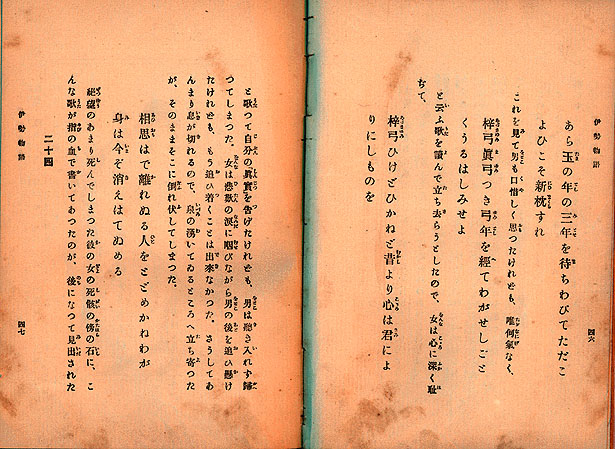 あら玉の年の三年を待ちわびてただこ
よひこそ新枕すれ
これを見て男も口惜しく思つたけれども、唯何氣なく、
梓弓眞弓つき弓年を經てわがせしごと
くうるはしみせよ
と云ふ歌を讀んで立ち去らうとしたので、女は心に深く耻
ぢて、
梓弓ひけどひかねど昔より心は君によ
りにしものを
四六
と歌つて自分の眞實を告げたけれども、男は聽き入れず歸
つてしまつた。女は悲歎の涙に咽びながら男の後を追ひ懸け
たけれども、もう追ひ着くことは出來なかつた。さうしてあ
んまり息が切れるので、泉の湧いてゐるところへ立ち寄つた
が、そのままそこに倒れ伏してしまつた。
相思はで離れぬる人をとどめかねわが
身は今ぞ消えはてぬめる
絶望のあまり死んでしまつた彼の女の死骸の傍の石に、こ
んな歌が指の血で書いてあつたのが、後になつて見出された
伊勢物語
二十四
四七